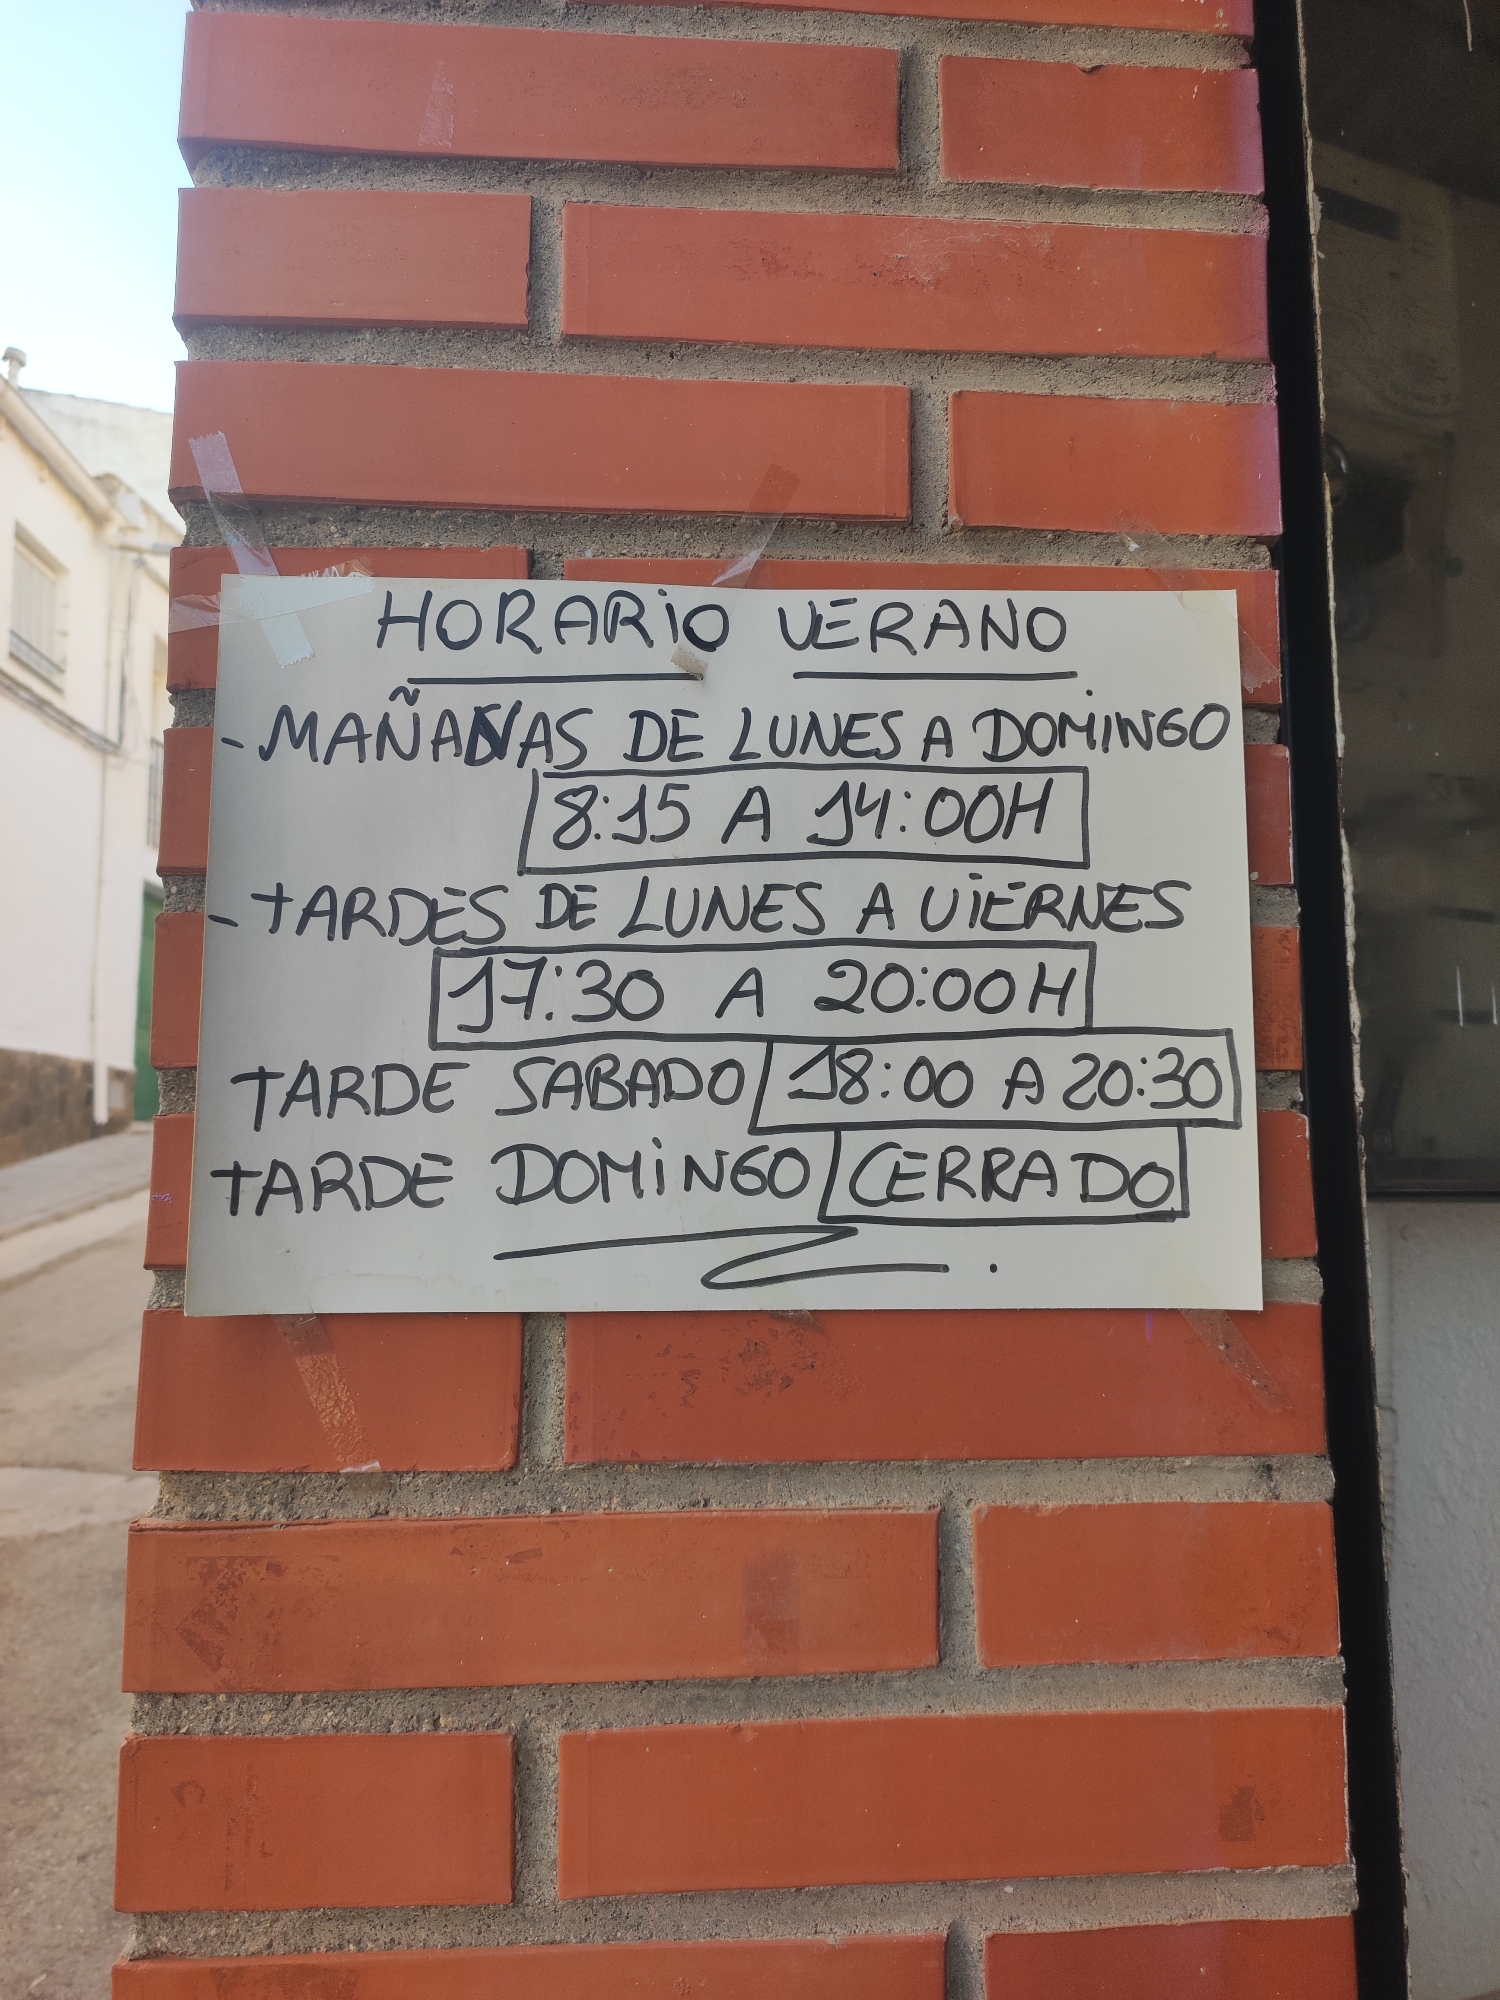 HORARIO VERANO
- MAÑANAS DE LUNES A DOMINGO
8:15 A 14:00H
- TARDES DE LUNES A VIERNES
17:30 A 20:00H
TARDE SABADO 18:00 A 20:30
TARDE DOMINGO CERRADO